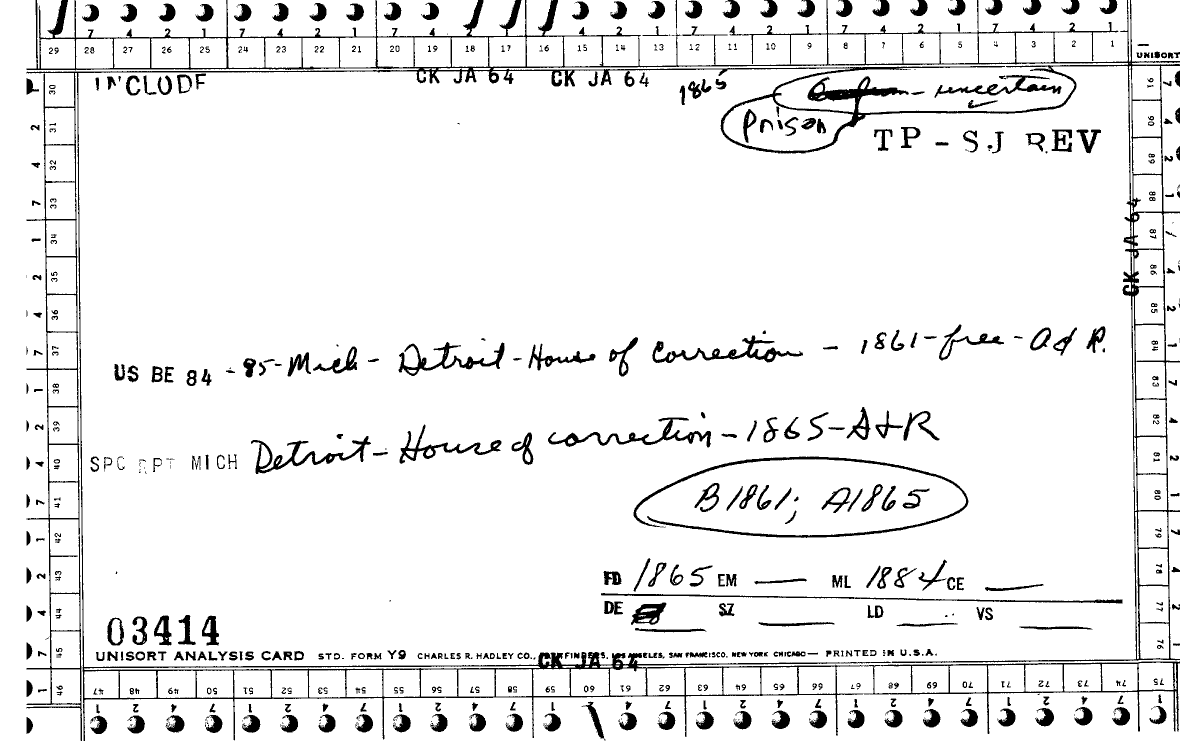 7 4 2 1 7 4 2 1 7 4 2 1 7 4 2 1 7 4 2 1 7 4 2 1
29 28 27 26 25 24 23 22 21 20 19 18 17 16 15 14 13 12 11 10 9 8 7 6 5 4 3 2 1
UNISORT
INCLUDE CK JA 64 CK JA 64 1865 - uncertain
Prison
TP - SJ REV
CK JA 64
US BE 84 - 85 - Mich - Detroit - House of Correction - 1861 - free - A & R.
SPC RPT MICH Detroit - House of correction - 1865 - A & R
B 1861; A 1865
FD 1865 EM — ML 1884 CE —
DE SZ LD VS
03414
UNISORT ANALYSIS CARD STD. FORM Y9 CHARLES R. HADLEY CO., PATHFINDERS, LOS ANGELES, SAN FRANCISCO, NEW YORK CHICAGO — PRINTED IN U.S.A.
CK JA 64
30 31 32 33 34 35 36 37 38 39 40 41 42 43 44 45 46
91 90 89 88 87 86 85 84 83 82 81 80 79 78 77 76 75
47 48 49 50 51 52 53 54 55 56 57 58 59 60 61 62 63 64 65 66 67 68 69 70 71 72 73 74